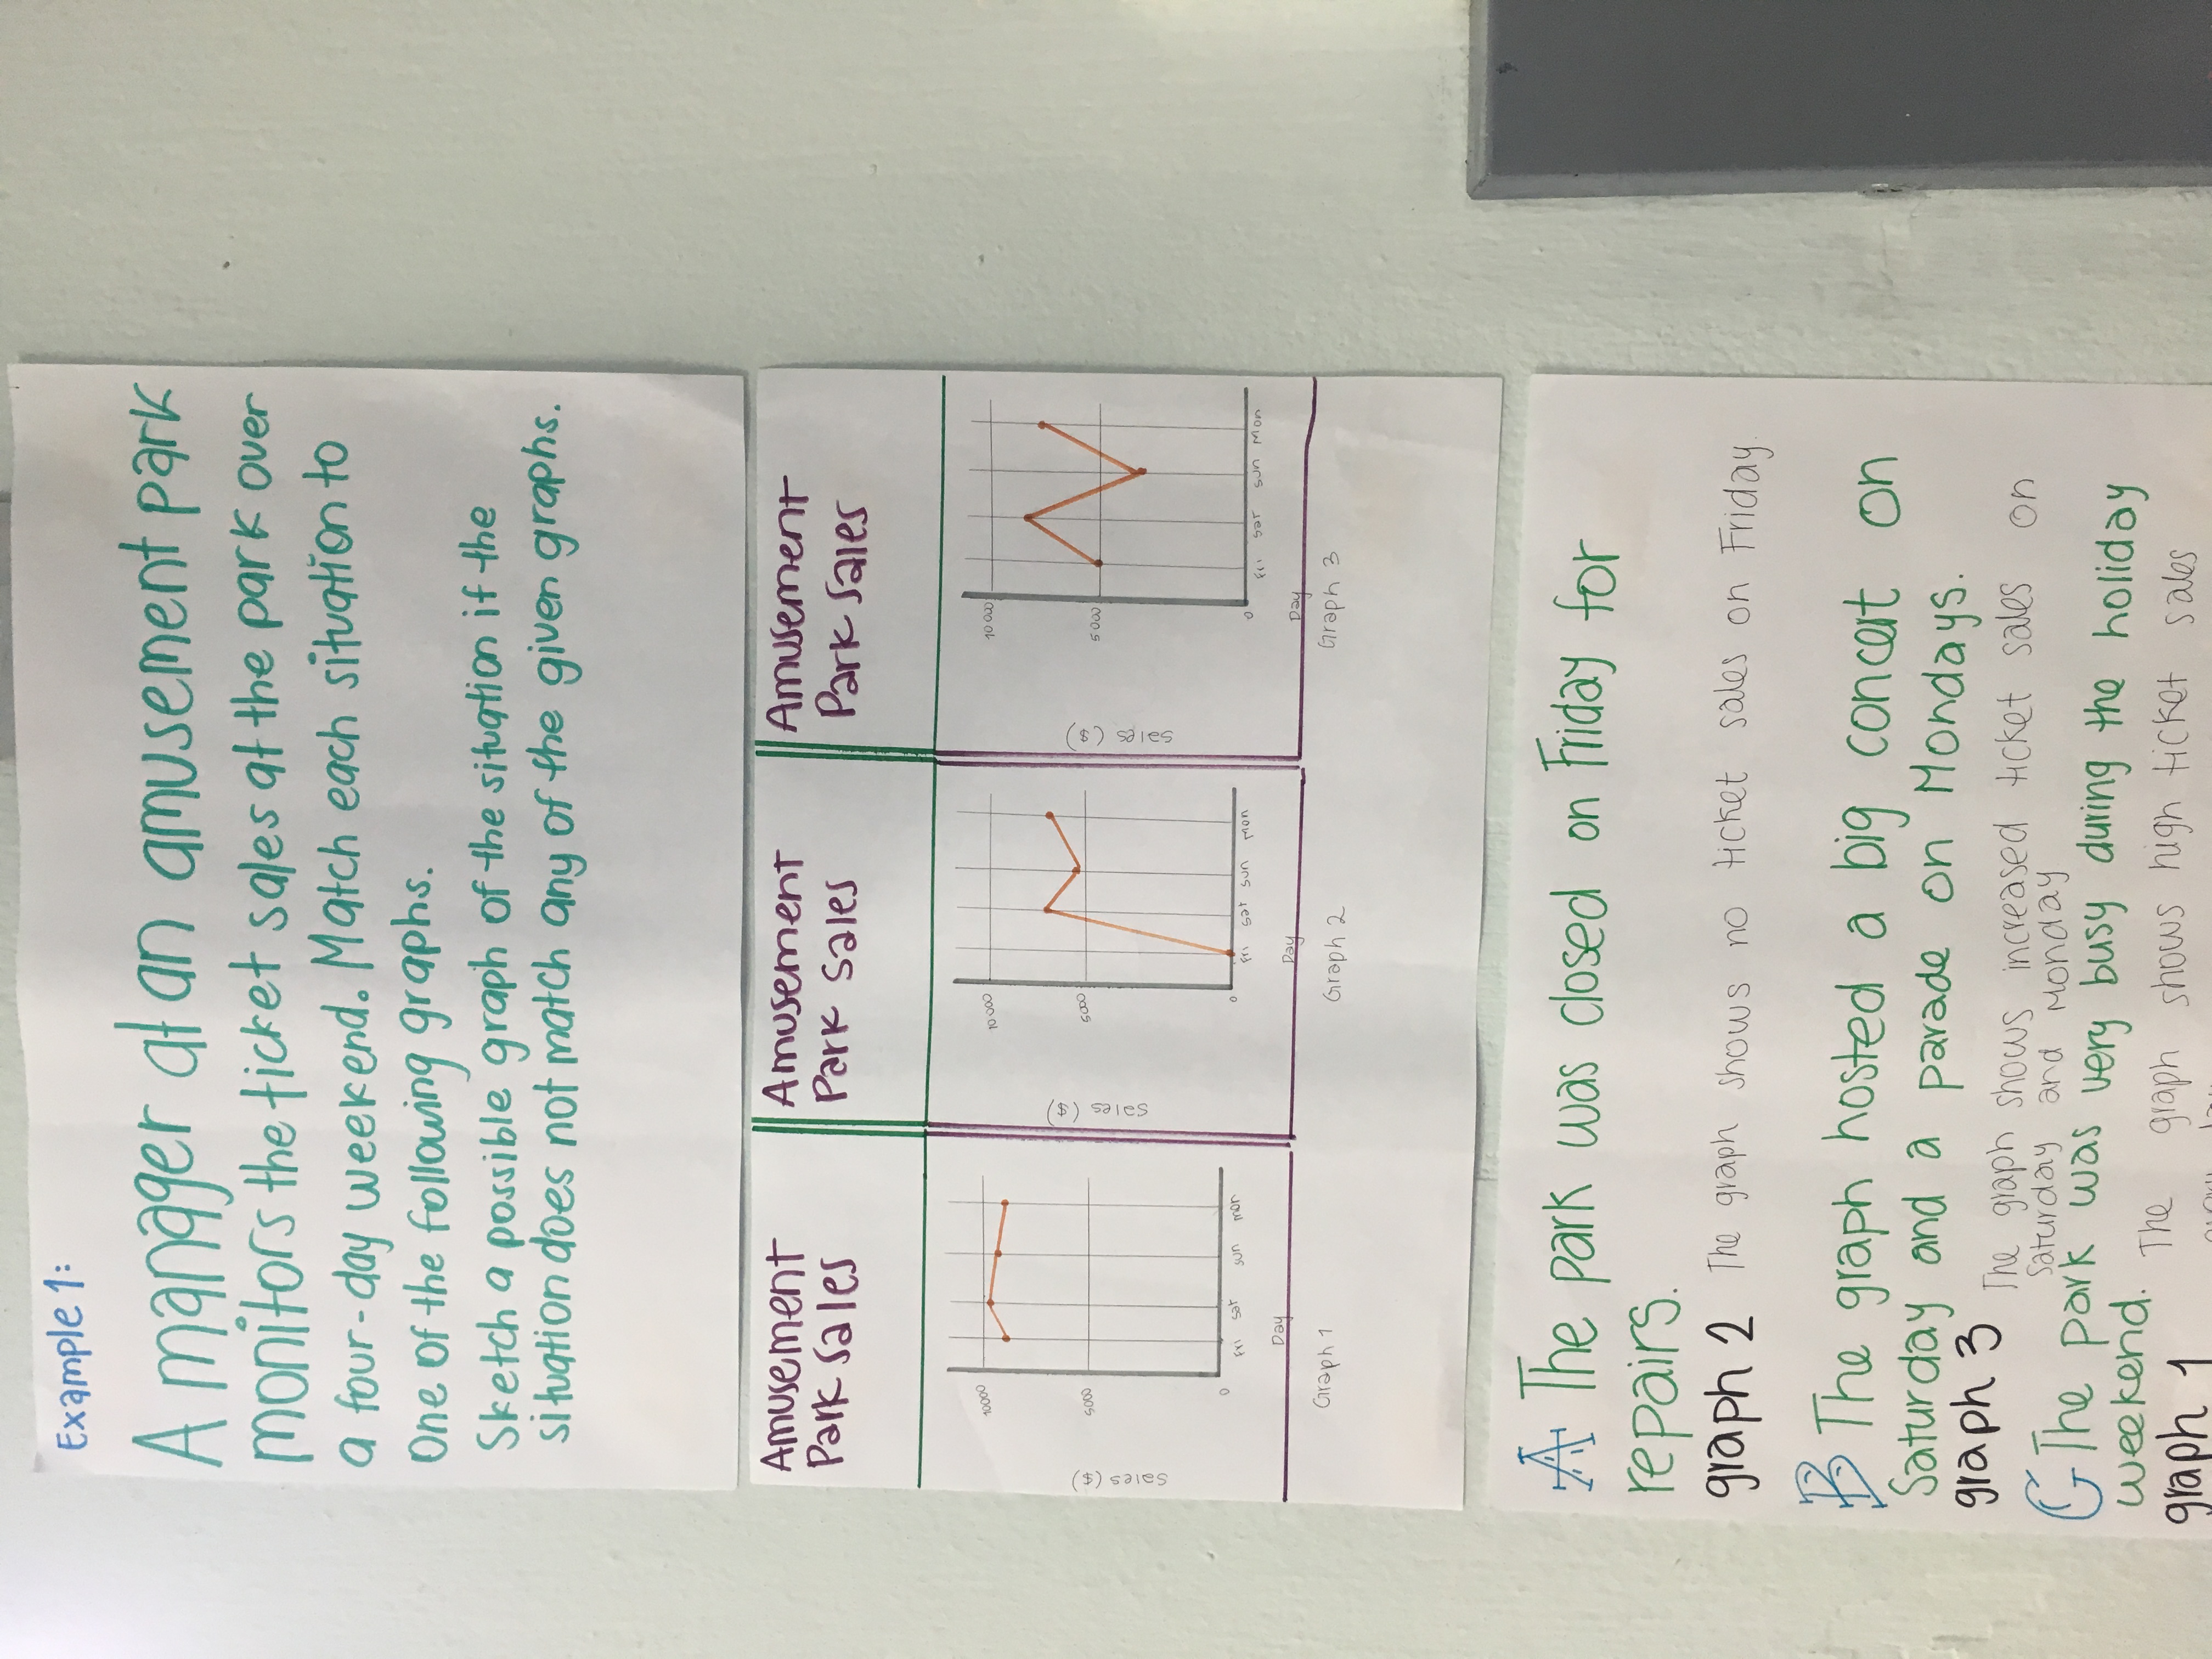 Example 1:
A manager at an amusement park
monitors the ticket sales at the park over
a four-day weekend. Match each situation to
One of the following graphs.
Sketch a possible graph of the situation if the
situation does not match any of the given graphs.
Amusement
Park Sales
Sales ($)
1000
5000
0
Fri Sat Sun Mon
Day
Graph 1
Amusement
Park Sales
Sales ($)
10000
5000
0
Fri Sat Sun Mon
Day
Graph 2
Amusement
Park Sales
Sales ($)
10000
5000
0
Fri Sat Sun Mon
Day
Graph 3
A The park was closed on Friday for
repairs.
graph 2 The graph shows no ticket sales on Friday.
B The graph hosted a big concert on
Saturday and a parade on Mondays.
graph 3 The graph shows increased ticket sales on
Saturday and Monday
C The park was very busy during the holiday
weekend.
graph 1 The graph shows high ticket sales